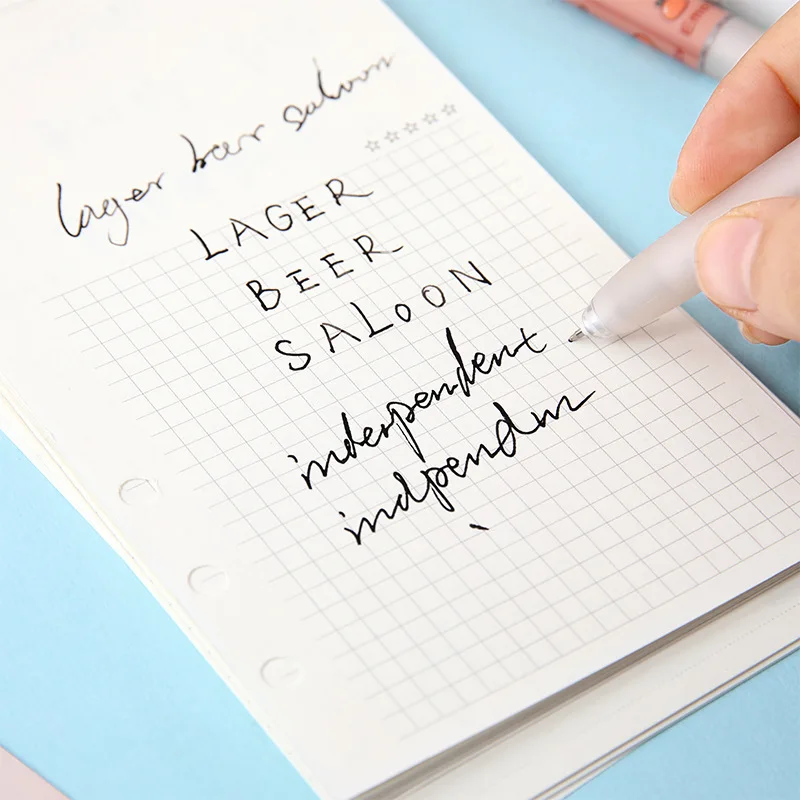 lager beer saloon
LAGER
BEER
SALOON
inderpendent
indpendm